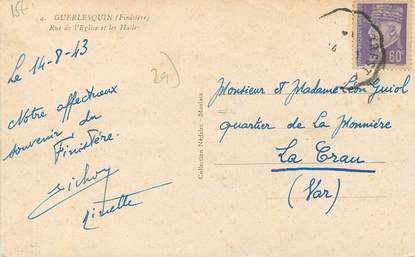 15f
4. GUERLESQUIN (Finistère)
Rue de l'Eglise et les Halles
Le 14-8-43
Notre affectueux
souvenir du
Finistère.
Ginette
Collection Nédélec - Morlaix
Monsieur et Madame Léon Guiol
quartier de la Monnière
La Crau
(Var)
60